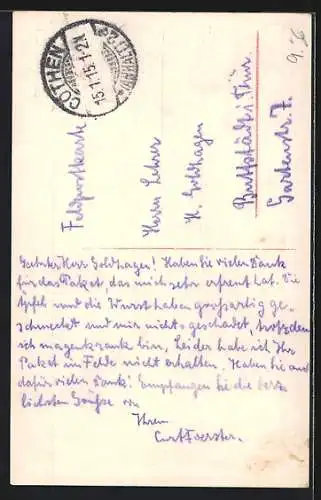 CÖTHEN
(ANHALT)
15.1.15.1-2N
9.76
Feldpostkarte
Herrn Lehrer
H. Goldhagen
Buttstädt i/Thür.
Gartenstr. 7.
Geehrter Herr Goldhagen! Haben Sie vielen Dank
für das Paket das mich sehr erfreut hat. Die
Äpfel und die Wurst haben großartig ge-
schmeckt und mir nichts geschadet, trotzdem
ich magenkrank bin, Leider habe ich Ihr
Paket im Felde nicht erhalten. Haben Sie auch
dafür vielen Dank! Empfangen Sie die herz-
lichsten Grüße von
Ihrem
Curt Foerster.